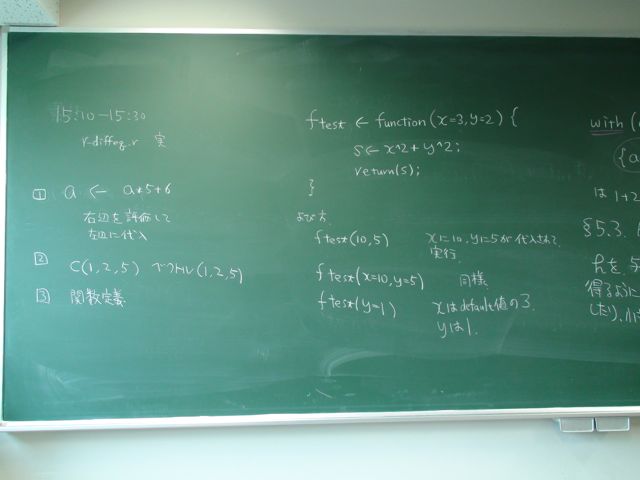 15:10-15:30
r-diffeq.r 実
1 a ← a*5+6
右辺を評価して
左辺に代入
2 C(1,2,5) ベクトル(1,2,5)
3 関数定義
ftest ← function(x=3,y=2){
s ← x^2+y^2;
return(s);
}
よび方
ftest(10,5) xに10,yに5が代入されて
実行.
ftest(x=10,y=5) 同様.
ftest(y=1) xはdefault値の3.
yは1.
with (
{a
は 1+2
§5.3.
hを
得るように
したり,